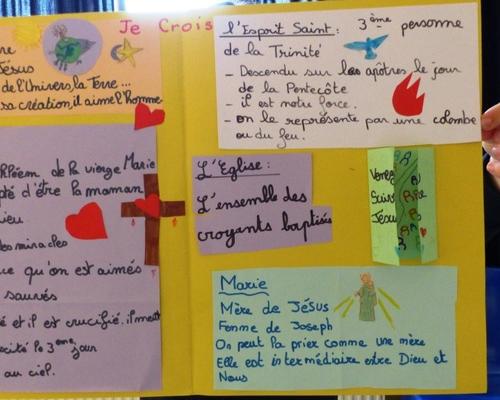 Je Crois
re
Jésus
de l'Univers, la Terre ...
sa création, il aime l'homme
l'Esprit Saint : 3ème personne
de la Trinité
- Descendu sur les apôtres le jour
de la Pentecôte
- il est notre force.
- on le représente par une colombe
ou du feu.
de la vierge Marie
d'être la maman
ieu
les miracles
ue qu'on est aimés
sauvés
é et il est crucifié. il meurt
cité le 3ème jour
au ciel.
L'Eglise :
L'ensemble des
croyants baptisés
Venez
Saint
Jésus
Marie
Mère de Jésus
Femme de Joseph
On peut la prier comme une mère
Elle est intermédiaire entre Dieu et
Nous